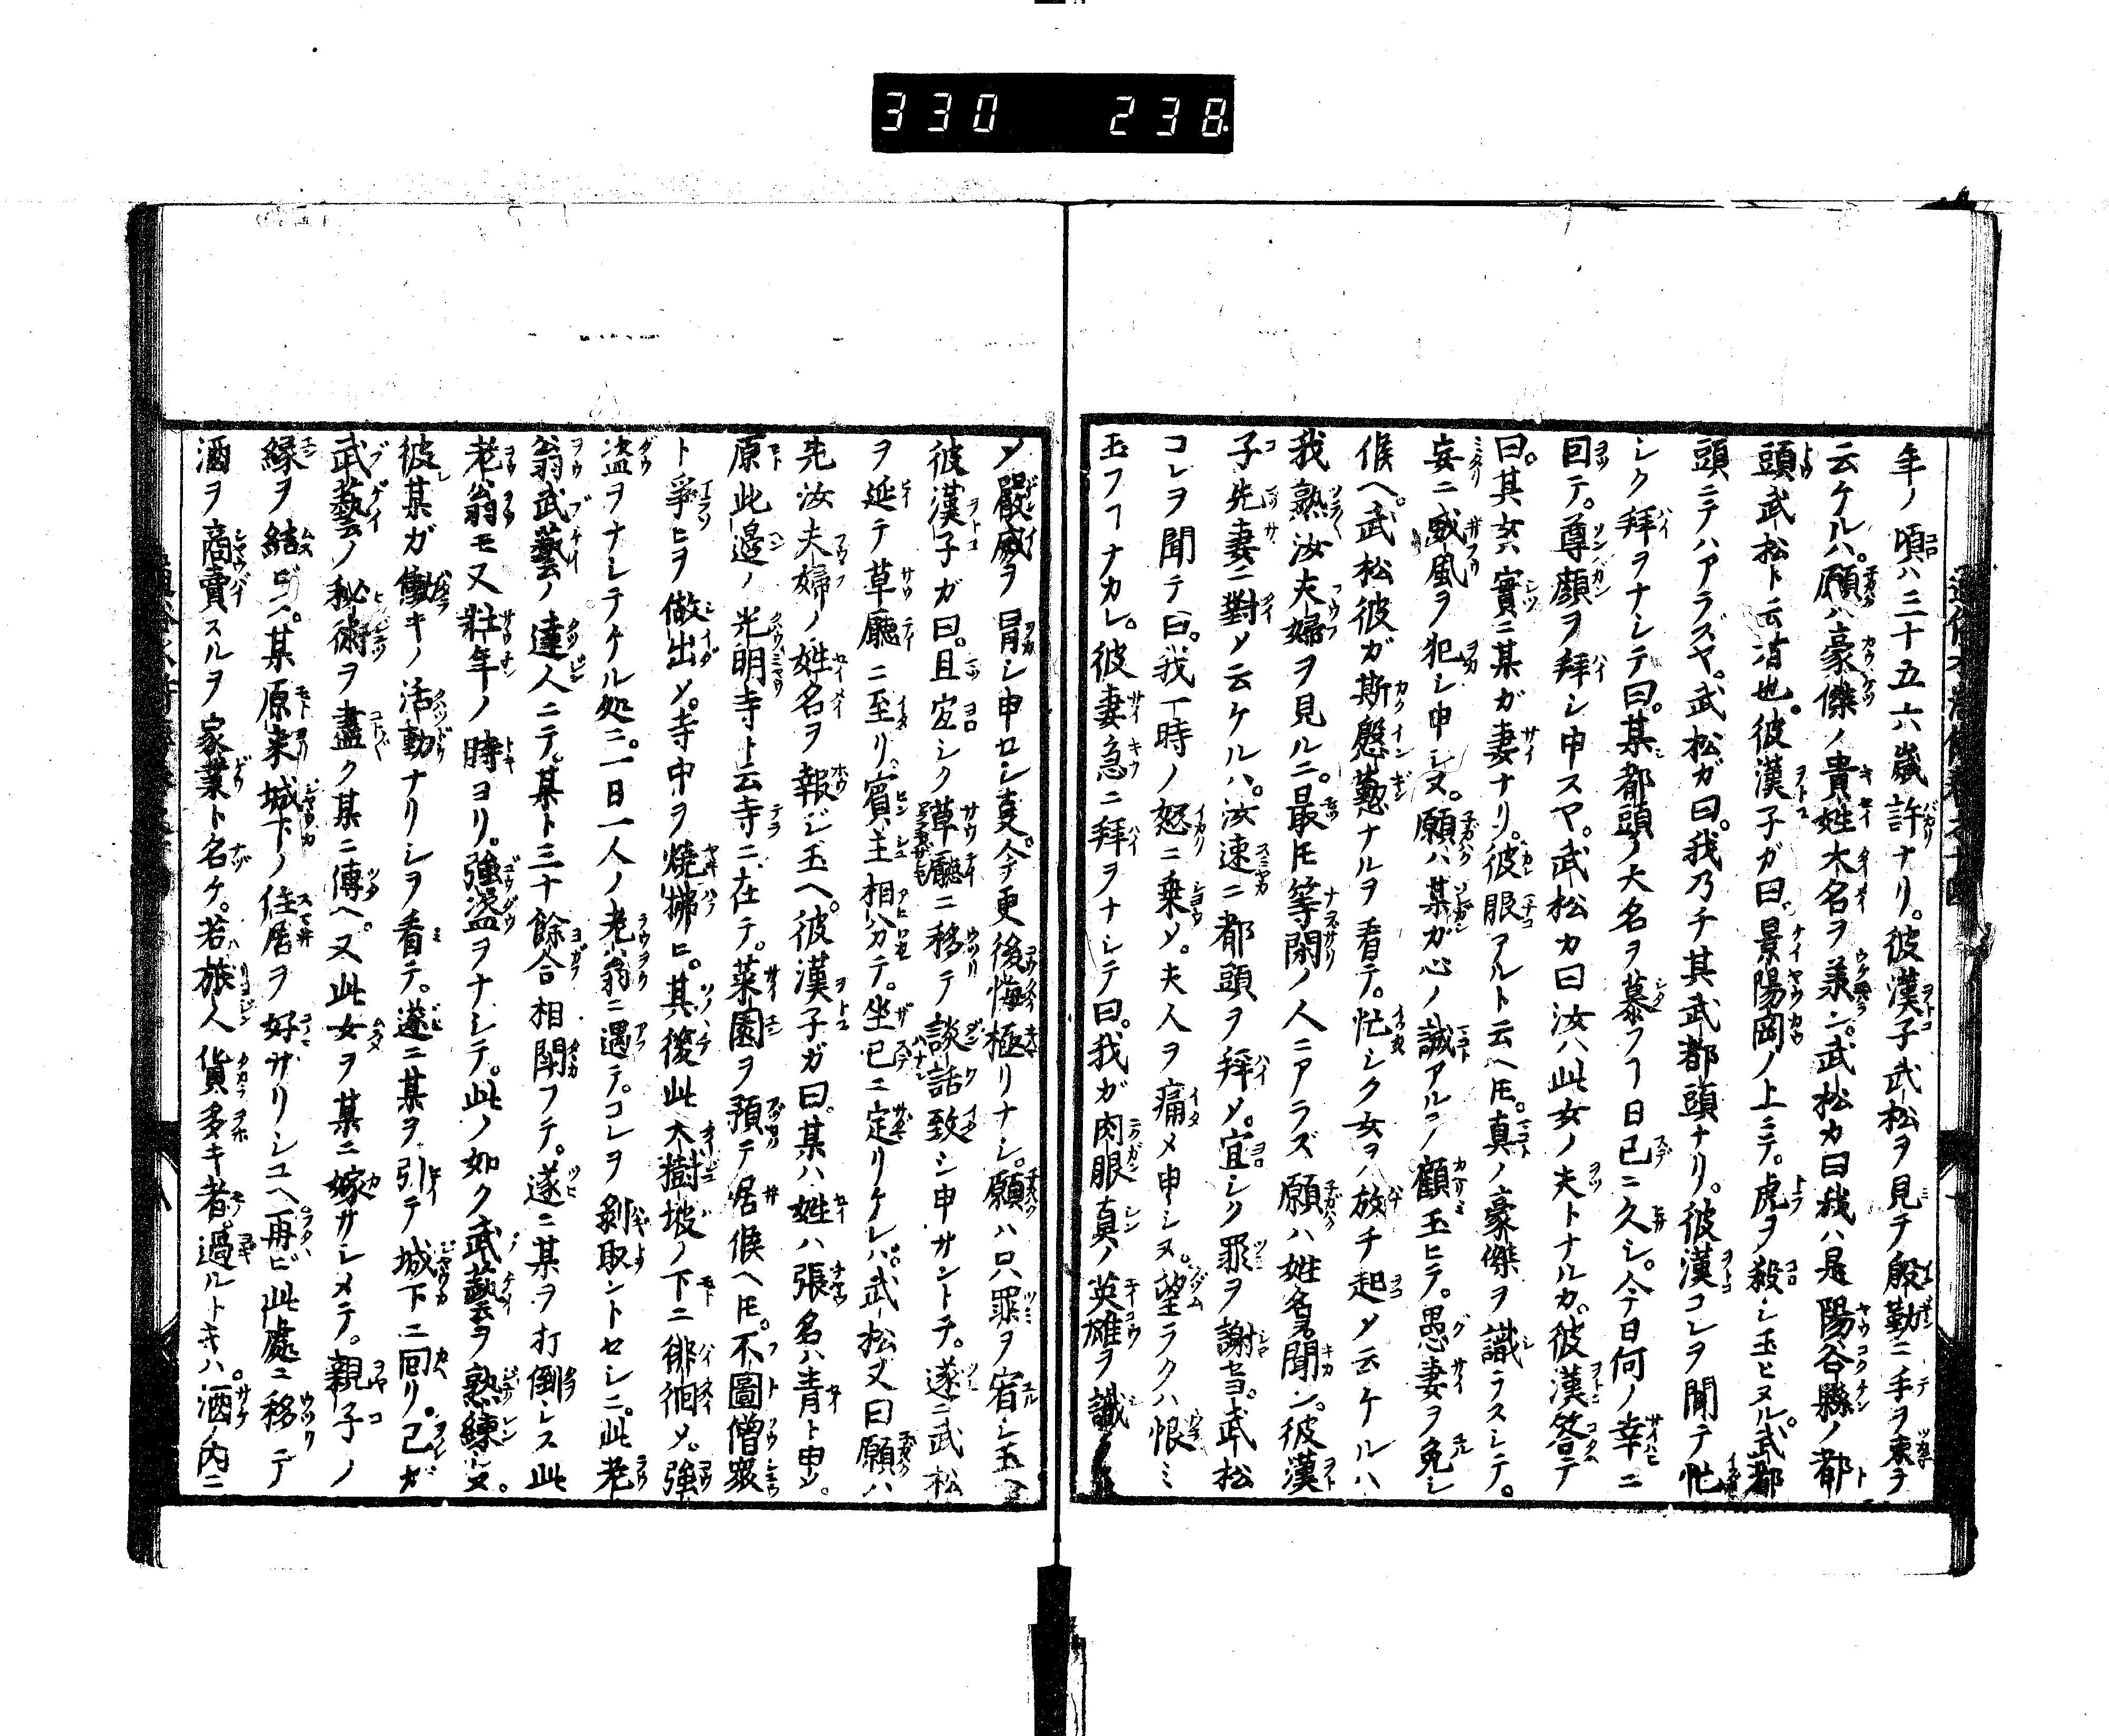 330 238
年ノ頃ハ三十五六歳許ナリ。彼漢子武松ヲ見テ慇勤ニ手ヲ束ヲ
云ケルハ。願ハ豪傑ノ貴姓大名ヲ羕ン。武松カ曰我ハ是陽谷縣ノ都
頭武松ト云者也。彼漢子ガ曰景陽岡ノ上ニテ。虎ヲ殺シ玉ヒヌル。武都
頭ニテハアラズヤ。武松ガ曰。我乃チ其武都頭ナリ。彼漢コレヲ聞テ忙
シク拜ヲナシテ曰。某都頭ノ大名ヲ慕フヿ日已ニ久シ。今日何ノ幸ニ
回テ。尊顔ヲ拜シ申スヤ。武松カ曰汝ハ此女ノ夫トナルカ。彼漢答テ
曰。其女ハ實ニ某ガ妻ナリ。彼眼アルト云ヘ𪜈。真ノ豪傑ヲ識ラスシテ。
妄ニ威風ヲ犯シ申シヌ。願ハ某ガ心ノ誠アルヲ顧玉ヒテ。愚妻ヲ免シ
候ヘ。武松彼ガ斯慇懃ナルヲ看テ。忙シク女ヲハ放チ起メ云ケルハ
我熟汝夫婦ヲ見ルニ。最𪜈等閑ノ人ニアラズ願ハ姓名ヲ聞ン。彼漢
子先妻ニ對メ云ケルハ。汝速ニ都頭ヲ拜メ。宜シク罪ヲ謝セヨ。武松
コレヲ聞テ曰。我一時ノ怒ニ乗メ。夫人ヲ痛メ申シヌ。望ラクハ恨ミ
玉フヿナカレ。彼妻急ニ拜ヲナシテ曰。我ガ肉眼真ノ英雄ヲ識
ノ嚴威ヲ冒シ申セシ叓。今更後悔極リナシ。願ハ只罪ヲ宥シ玉ヘ
彼漢子ガ曰。且宜シク草廳ニ移テ談話致シ申サントテ。遂ニ武松
ヲ延テ草廳ニ至リ。賓主相分テ。坐已ニ定リケレハ。武松又曰願ハ
先汝夫婦ノ姓名ヲ報ジ玉ヘ。彼漢子ガ曰。某ハ姓ハ張名ハ青ト申ソ。
原此邉ノ光明寺ト云寺ニ在テ。菜園ヲ預テ居候ヘ𪜈。不圖僧衆
ト爭ヒヲ做出メ。寺中ヲ燒拂ヒ。其後此大樹坡ノ下ニ徘徊メ。強
盗ヲナシテケル処ニ。一日一人ノ老翁ニ遇テ。コレヲ剝取ントセシニ。此老
翁武藝ノ達人ニテ。某ト三十餘合相鬪フテ。遂ニ某ヲ打倒シス此
老翁モ又壯年ノ時ヨリ。強盗ヲナシテ。此ノ如ク武藝ヲ熟練シヌ。
彼某ガ働キノ活動ナリシヲ看テ。遂ニ某ヲ引テ城下ニ回リ。己ガ
武藝ノ秘術ヲ盡ク某ニ傳ヘ。又此女ヲ某ニ嫁サシメテ。親子ノ
縁ヲ結ビシ。某原来城下ノ住居ヲ好ザリシユヘ再ビ此處ニ移テ
酒ヲ商賣スルヲ家業ト名ケ。若旅人貨多キ者。過ルトキハ。酒ノ内ニ